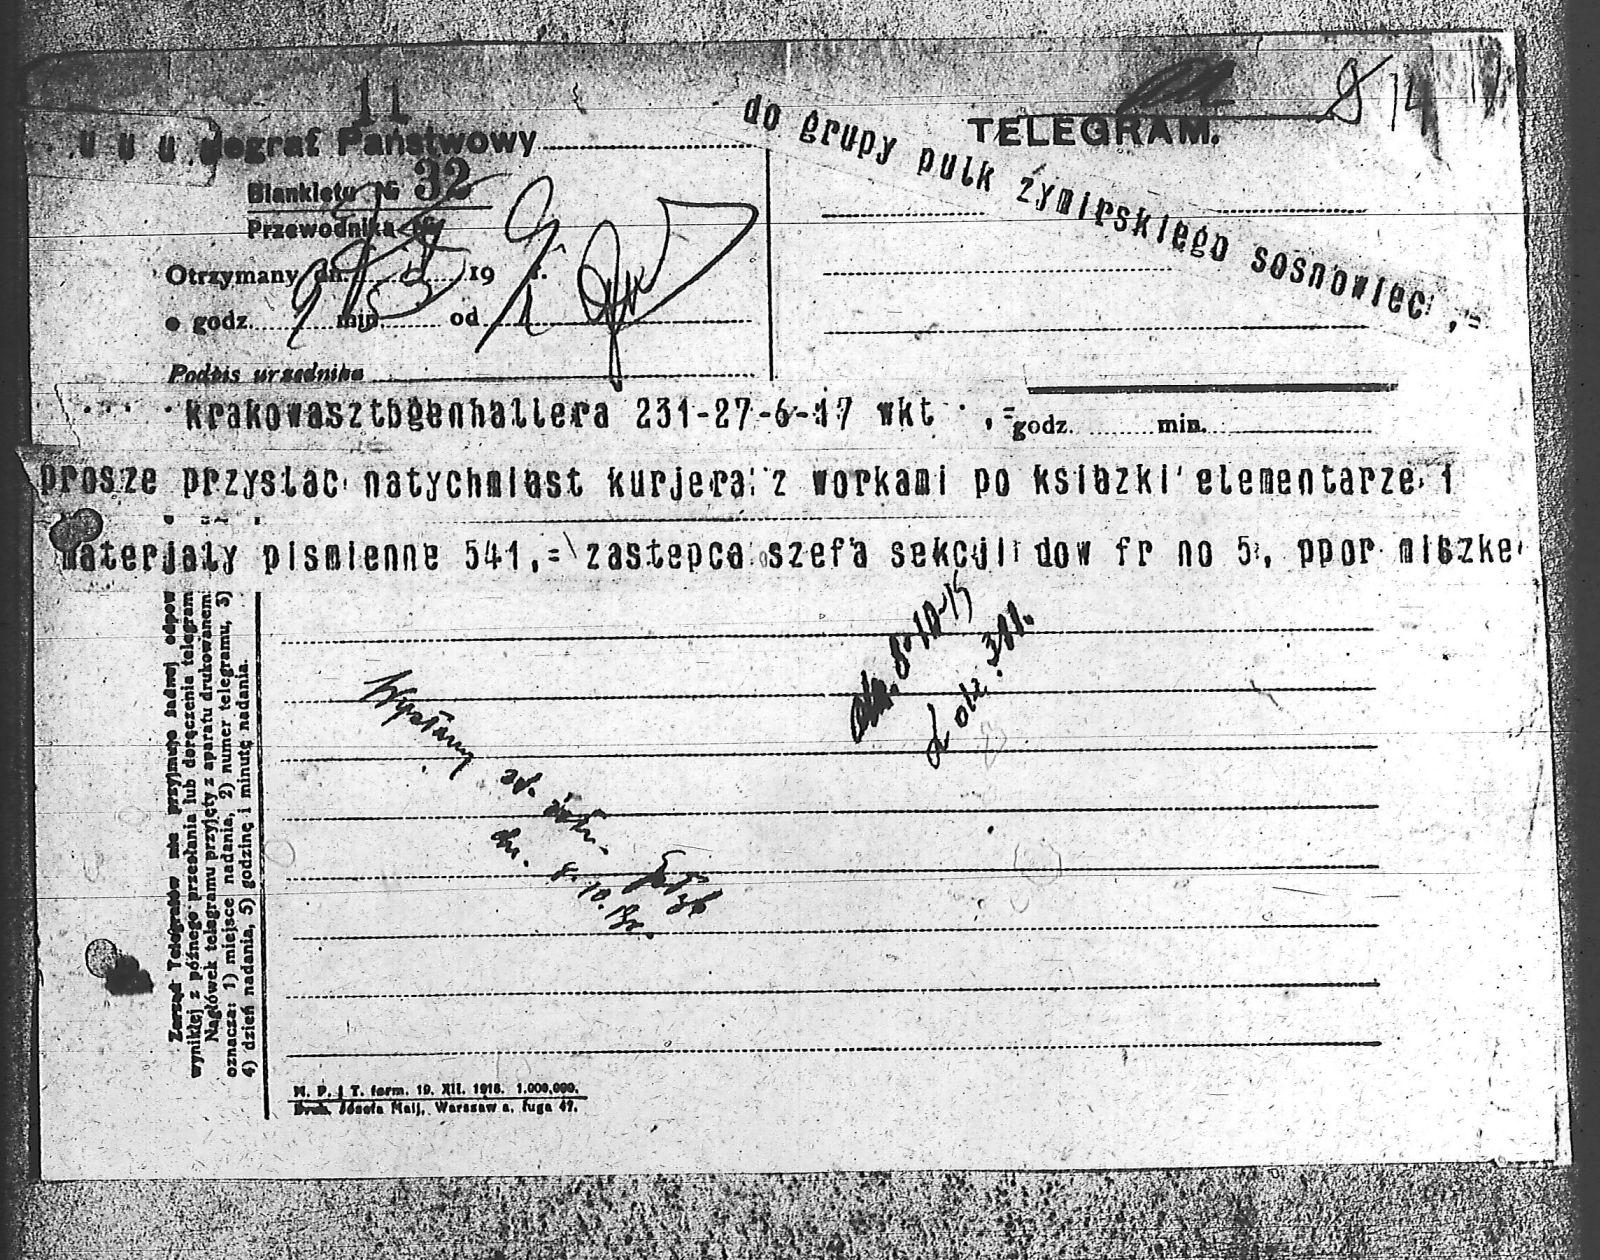 11
u u u
Telegraf Państwowy
TELEGRAM.
8 14
do grupy pulk zymirskiego sosnowiec ,=
Blankietu № 32
Przewodnika №
Otrzymany dn. 19 r.
o godz. min. od
Podpis urzędnika
krakowasztbgenhallera 231-27-6-17 wkt ,=
godz. min.
prosze przyslac natychmiast kurjera z workami po ksiazki elementarze i
materjaly pismienne 541,= zastepca szefa sekcji dow fr no 5, ppor miszke
8.10.15
L. dz. 311.
Wysłany
st. żołn.
dn. 8.10.
Zarząd Telegrafów nie przyjmuje żadnej odpow
wynikłej z późnego przesłania lub doręczenia telegram
Nagłówek telegramu przyjęty z aparatu drukowanem
oznacza: 1) miejsce nadania, 2) numer telegramu, 3)
4) dzień nadania, 5) godzinę i minutę nadania.
M. P. i T. form. 19. XII. 1918. 1.000,000.
Druk. Józefa Malj, Warszawa,